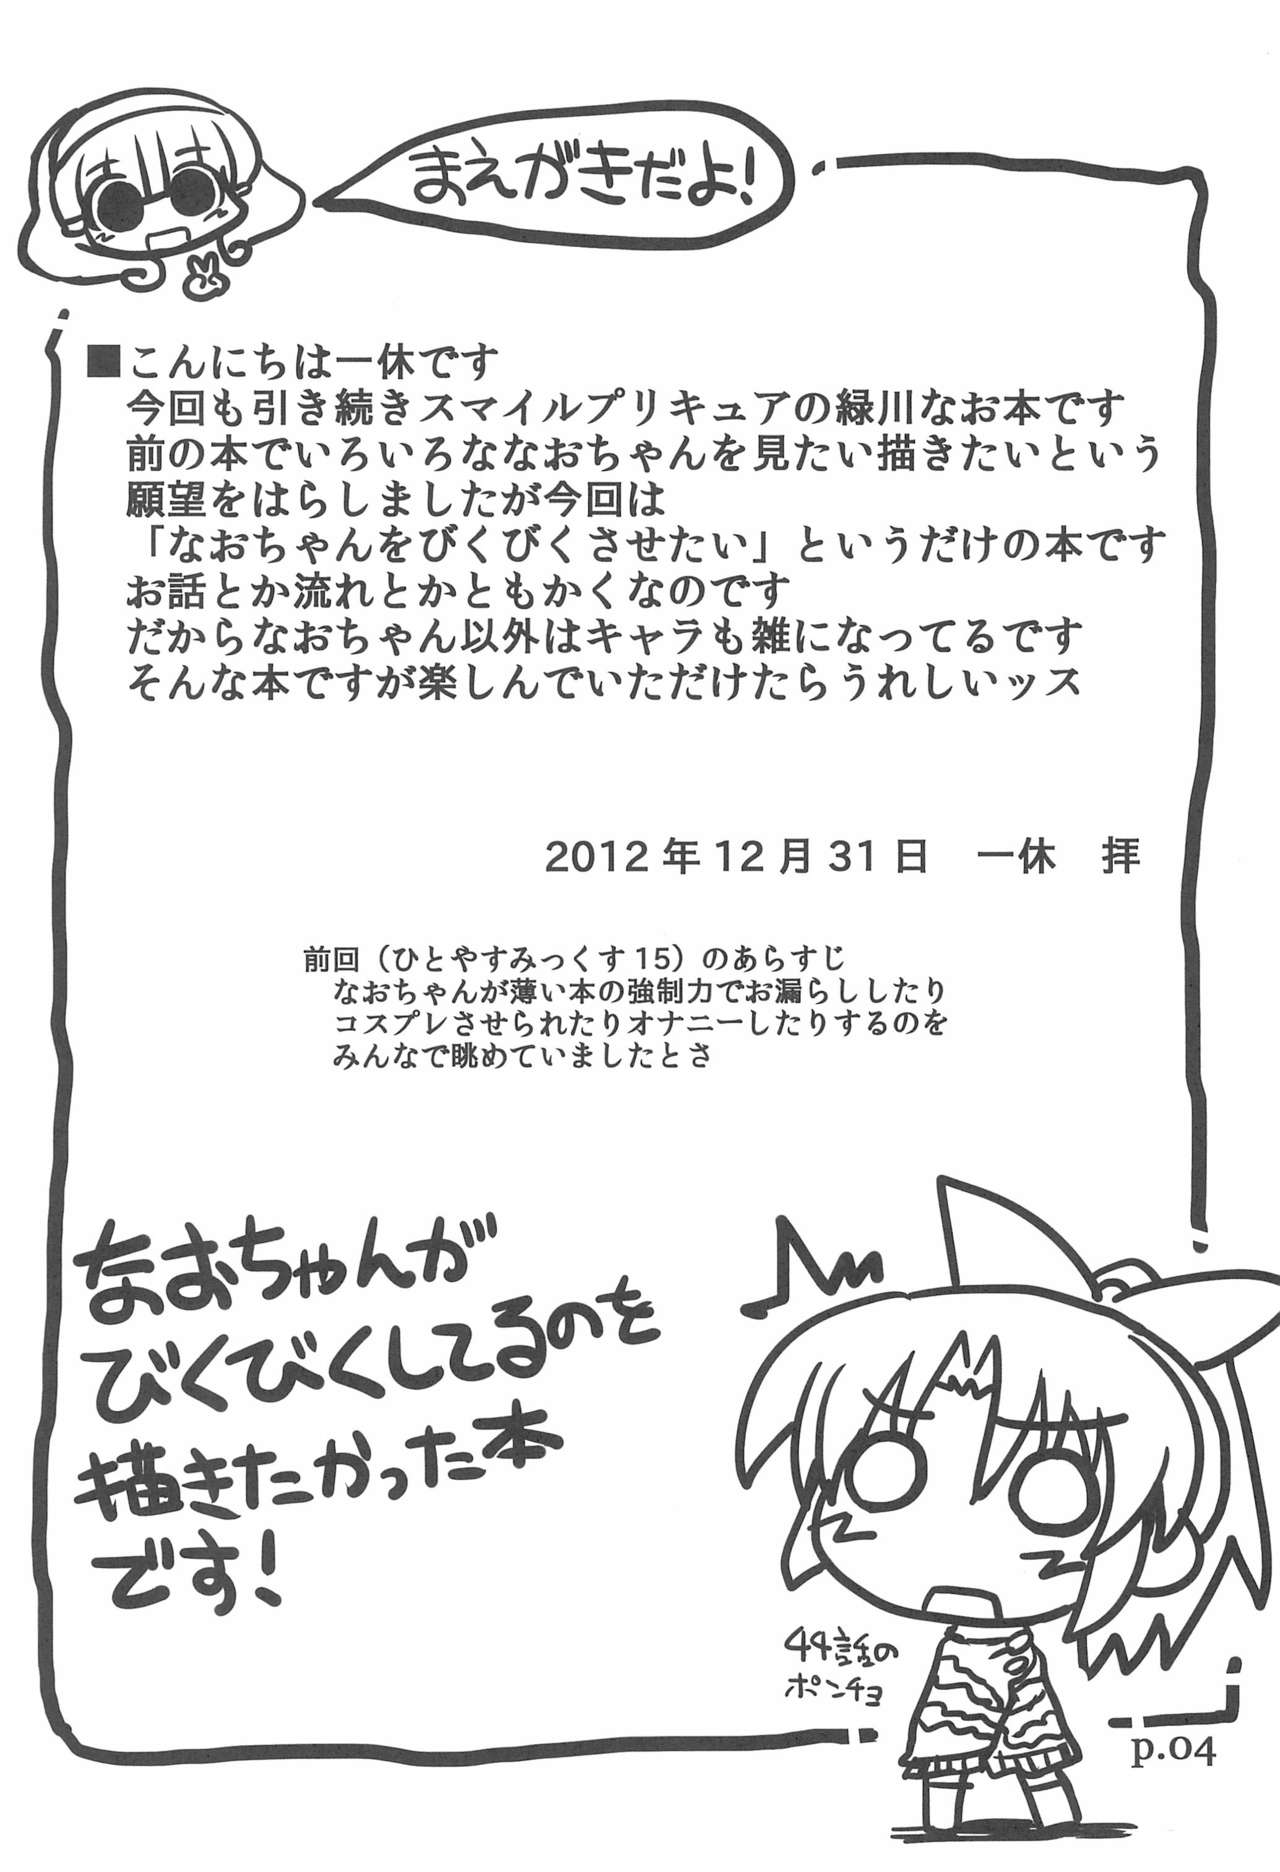 まえがきだよ!
■こんにちは一休です
今回も引き続きスマイルプリキュアの緑川なお本です
前の本でいろいろななおちゃんを見たい描きたいという
願望をはらしましたが今回は
「なおちゃんをびくびくさせたい」というだけの本です
お話とか流れとかともかくなのです
だからなおちゃん以外はキャラも雑になってるです
そんな本ですが楽しんでいただけたらうれしいッス
2012年12月31日　一休　拝
前回（ひとやすみっくす15）のあらすじ
なおちゃんが薄い本の強制力でお漏らししたり
コスプレさせられたりオナニーしたりするのを
みんなで眺めていましたとさ
なおちゃんが
びくびくしてるのを
描きたかった本
です!
44話の
ポンチョ
p.04